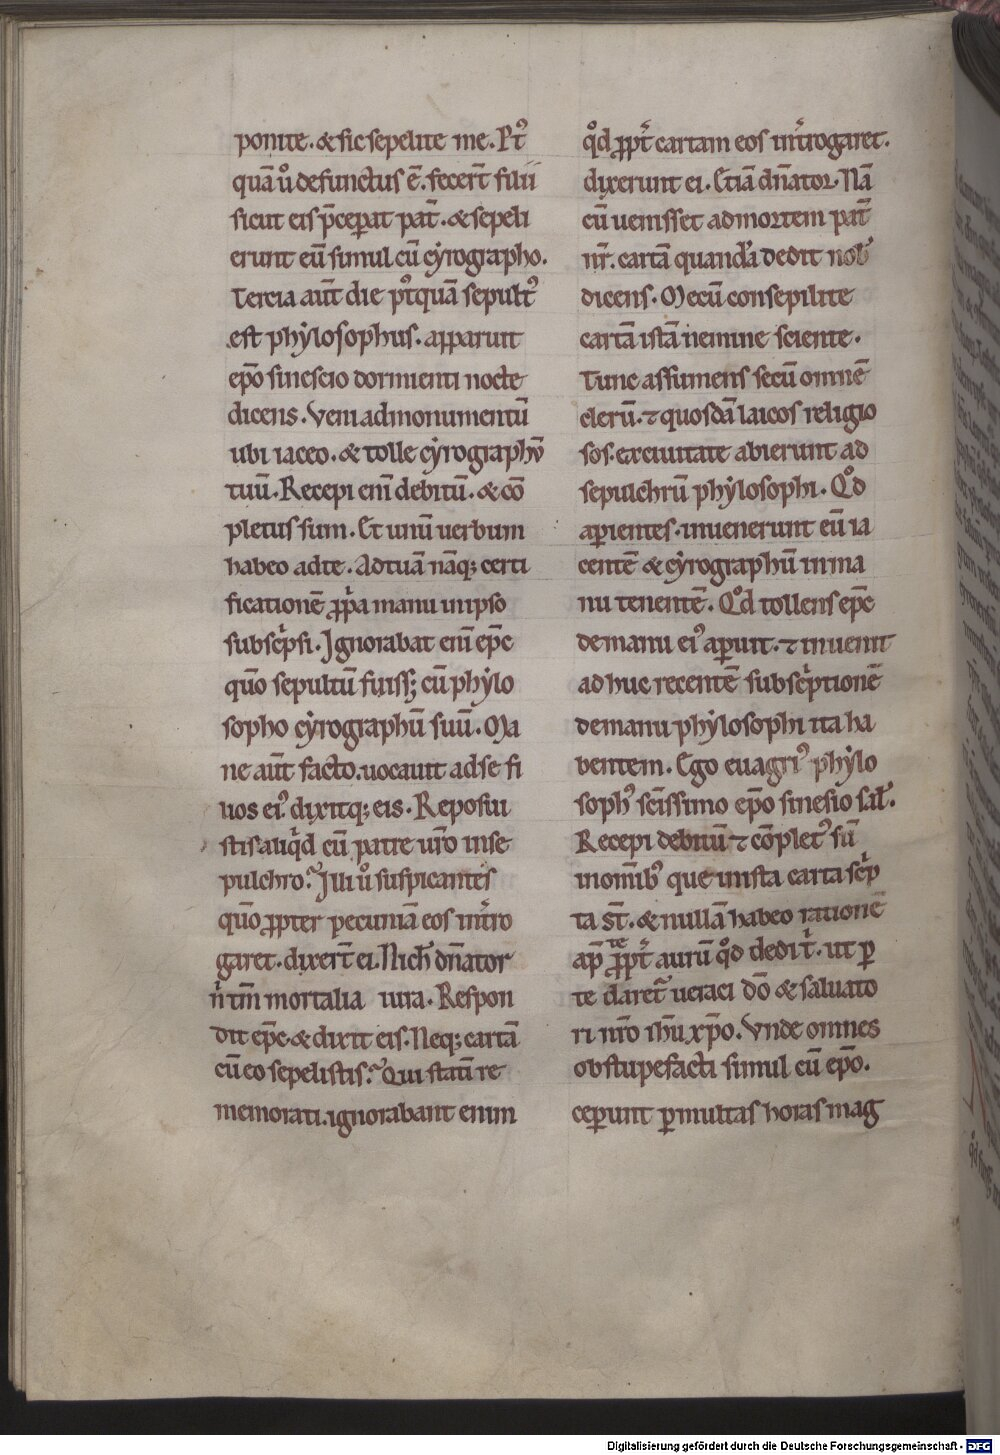 ponite. & sic sepelite me. Pt᷒
quā ů defunctus ē. fecer̄t filii
sicut eis p̄ceperat pat̄. & sepeli
erunt eū simul cū cẏrographo.
Tercia aūt die pt᷒quā sepult᷒
est phẏlosophus. apparuit
ep̄o sinescio dormienti nocte
dicens. Veni ad monumentū
ubi iaceo. & tolle cẏrographū
tuū. Recepi eni debitū. & cō
pletus sum. Et unū uerbum
habeo ad te. Ad tuā nāq; certi
ficationē ꝓpͥa manu in ipso
subscͥpsi. Ignorabat eni ep̄c
quō sepultū fuiss; cū phẏlo
sopho cẏrographū suū. Ma
ne aūt facto. uocauit ad se fi
lios ei᷒. dixitq; eis. Reposui
stis aliqͥd cū patre ur̄o in se
pulchro? Illi ů suspicantes
quō ꝓpter pecuniā eos int̄ro
garet. dixer̄t ei. Nich̄ dn̄ator
n̄ tm̄ mortalia iura. Respon
dit ep̄c. & dixit eis. Neq; cartā
cū eo sepelistis? Qui statī re
memorati. ignorabant enim
qd̊ ꝓpt̄ cartam eos int̄rogaret.
dixerunt ei. Etiā dn̄ator. Nā
cū uenisset ad mortem pat̄
nr̄. cartā quandā dedit nob᷒
dicens. Mecū consepilite
cartā istā nemine sciente.
Tunc assumens secū omnē
clerū. ⁊ quosdā laicos religio
sos. ex ciuitate abierunt ad
sepulchrū phẏlosophi. Qd̊
aꝑientes. inuenerunt eū ia
centē & cẏrographū in ma
nu tenentē. Qd̊ tollens ep̄c
de manu ei᷒ aꝑuit. ⁊ inuenit
ad huc recentē subscͥptionē
de manu phẏlosophi ita ha
bentem. Ego euagri᷒ phẏlo
soph᷒ sc̄issimo ep̄o sinesio sal̄.
Recepi debitū ⁊ cōplet᷒ sū
in omīb᷒ que in ista carta scͥp
ta st̄. & nullā habeo rationē
te
ap̄ ꝓpt̄ aurū qd̊ dedi tͥ. ut ꝑ
te daret᷒ ueraci dō & saluato
ri nr̄o ihū xp̄o. Vnde omnes
obstupefacti simul cū ep̄o.
ceperunt ꝑ multas horas mag
Digitalisierung gefördert durch die Deutsche Forschungsgemeinschaft - DFG